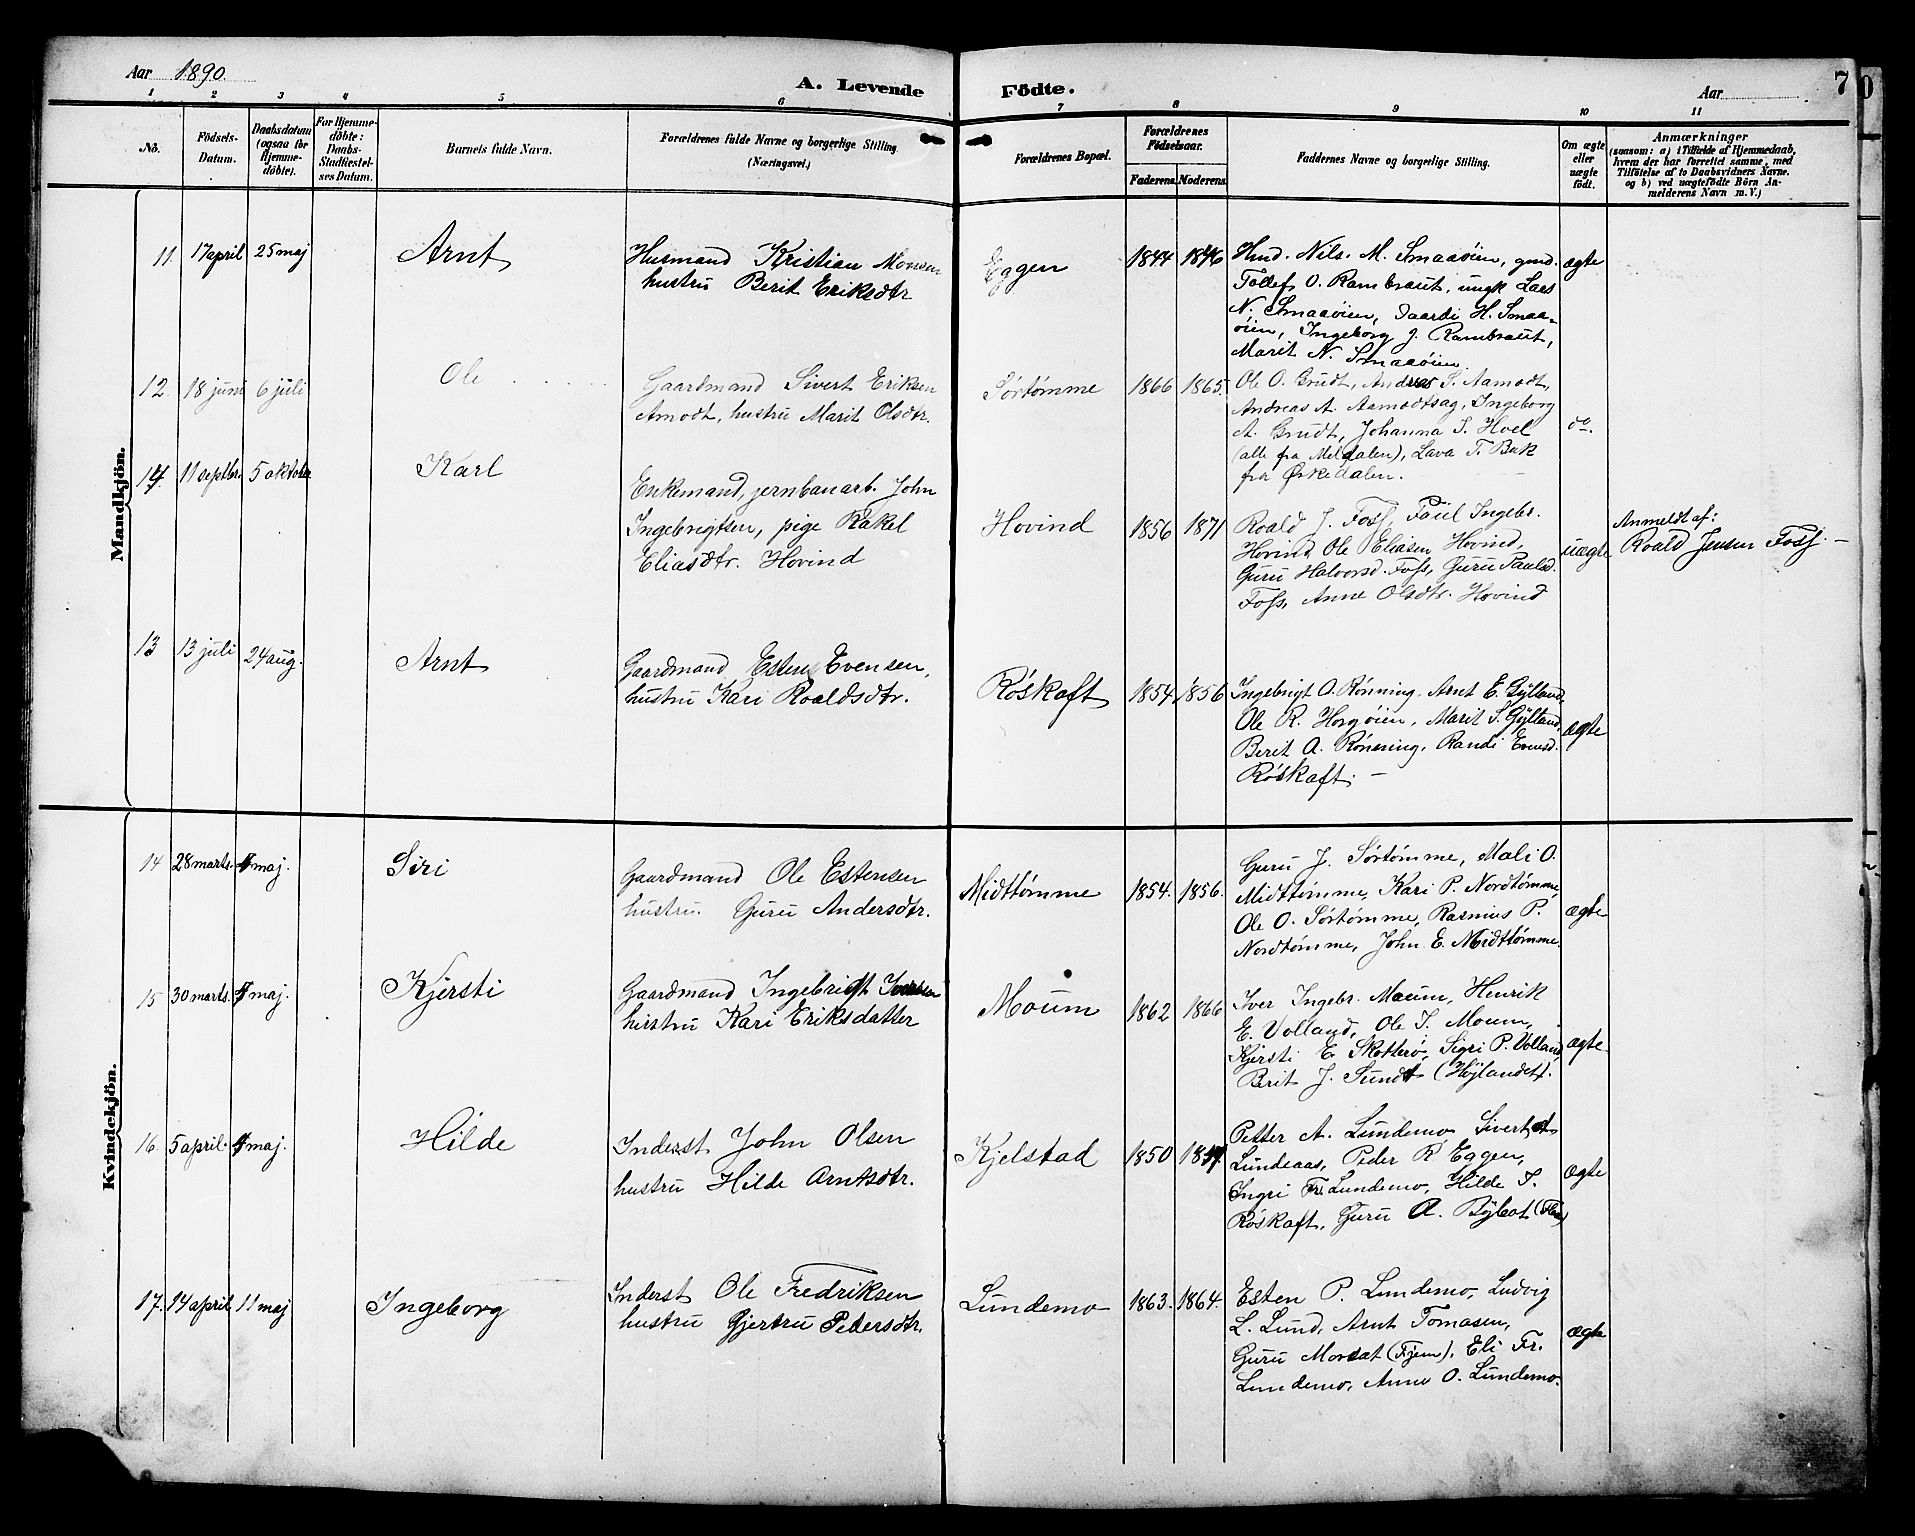 Aar 1890.
A. Levende Födte.
Aar
7
1 2 3 4 5 6 7 8 9 10 11
No.
Födsels-Datum.
Daabsdatum (ogsaa för Hjemme-döbte).
For Hjemme-döbte: Daabs-Stadfæstel-ses Datum.
Barnets fulde Navn.
Forældrenes fulde Navne og borgerlige Stilling (Næringsvei.)
Forældrenes Bopæl.
Forældrenes Födselsaar.
Faderens. Moderens.
Faddernes Navne og borgerlige Stilling.
Om ægte eller uægte födt.
Anmærkninger
(saasom: a) i Tilfælde af Hjemmedaab,
hvem der har forrettet samme, med
Tilföielse af to Daabsvidners Navne.
og b) ved uægtefödte Börn An-
melderens Navn m. V.)
Mandkjön.
11. 17 april 25 maj Arnt
Husmand Kristian Monsen
hustru Berit Eriksdtr
Eggen 1844 1846
Hmd. Nils M. Smaaøien, gmd.
Tollef O. Rambraut, ungk Lars
N. Smaaøien, Gaardi H. Smaa-
øien, Ingeborg J. Rambraut,
Marit N. Smaaøien.
ægte
12. 18 juni 6 juli Ole
Gaardmand Sivert Eriksen
Amodt, hustru Marit Olsdtr.
Sørtømme 1866 1865.
Ole O. Grudt, Andreas S. Aamodt,
Andreas A. Aamodtsag, Ingeborg
A. Grudt, Johanna S. Hoel
(alle fra Meldalen), Lava T. Bak
fra Ørkedalen.
do.
14. 11 septbr. 5 oktober Karl
Enkemand, jernbanarb. John
Ingebrigtsen, pige Rakel
Eliasdtr. Hovind
Hovind 1856 1871
Roald J. Foss, Paul Ingebr.
Hovind, Ole Eliasen Hovind,
Guru Halvorsd. Foss, Guru Paulsd.
Foss, Anne Olsdtr. Hovind
uægte
Anmeldt af:
Roald Jensen Foss. —
13 13 juli 24 aug. Arnt
Gaardmand Esten Evensen,
hustru Kari Roaldsdtr.
Røskaft 1854. 1856
Ingebrigt A. Rønning, Arnt E. Gylland,
Ole R. Horgøien, Marit S. Gylland,
Berit A. Rønning, Randi Evensd.
Røskaft. —
ægte
Kvindekjön.
14 28 marts. 4 maj. Siri
Gaardmand Ole Estensen
hustru Guru Andersdtr.
Midttømme 1854. 1856.
Guru J. Sørtømme, Mali O.
Midttømme, Kari P. Nordtømme,
Ole O. Sørtømme, Rasmus P.
Nordtømme, John E. Midttømme.
ægte
15 30 marts. 4 maj. Kjersti
Gaardmand Ingebrigt Iversen
hustru Kari Eriksdatter
Moum 1862 1866
Iver Ingebr. Moum, Henrik
E. Volland, Ole I. Moum,
Kjersti E. Skotterø, Sigri P. Volland,
Brit J. Sundt (Højlandet).
ægte.
16. 5 april. 4 maj. Hilde
Inderst John Olsen
hustru Hilde Arntsdtr.
Kjelstad 1850
Petter A. Lundemo, Sivert A
Lundeaas, Peder R. Eggen,
Ingri Fr. Lundemo, Hilde S.
Røskaft, Guru A. Byloat
ægte
17. 14 april. 11 maj Ingeborg
Inderst Ole Fredriksen
hustru Gjertru Pedersdtr.
Lundemo 1863. 1864.
Esten P. Lundemo, Ludvig
L. Lund, Arnt Tomasen,
Guru Morsat (Hjem), Eli Fr.
Lundemo, Anne O. Lundemo.
ægte